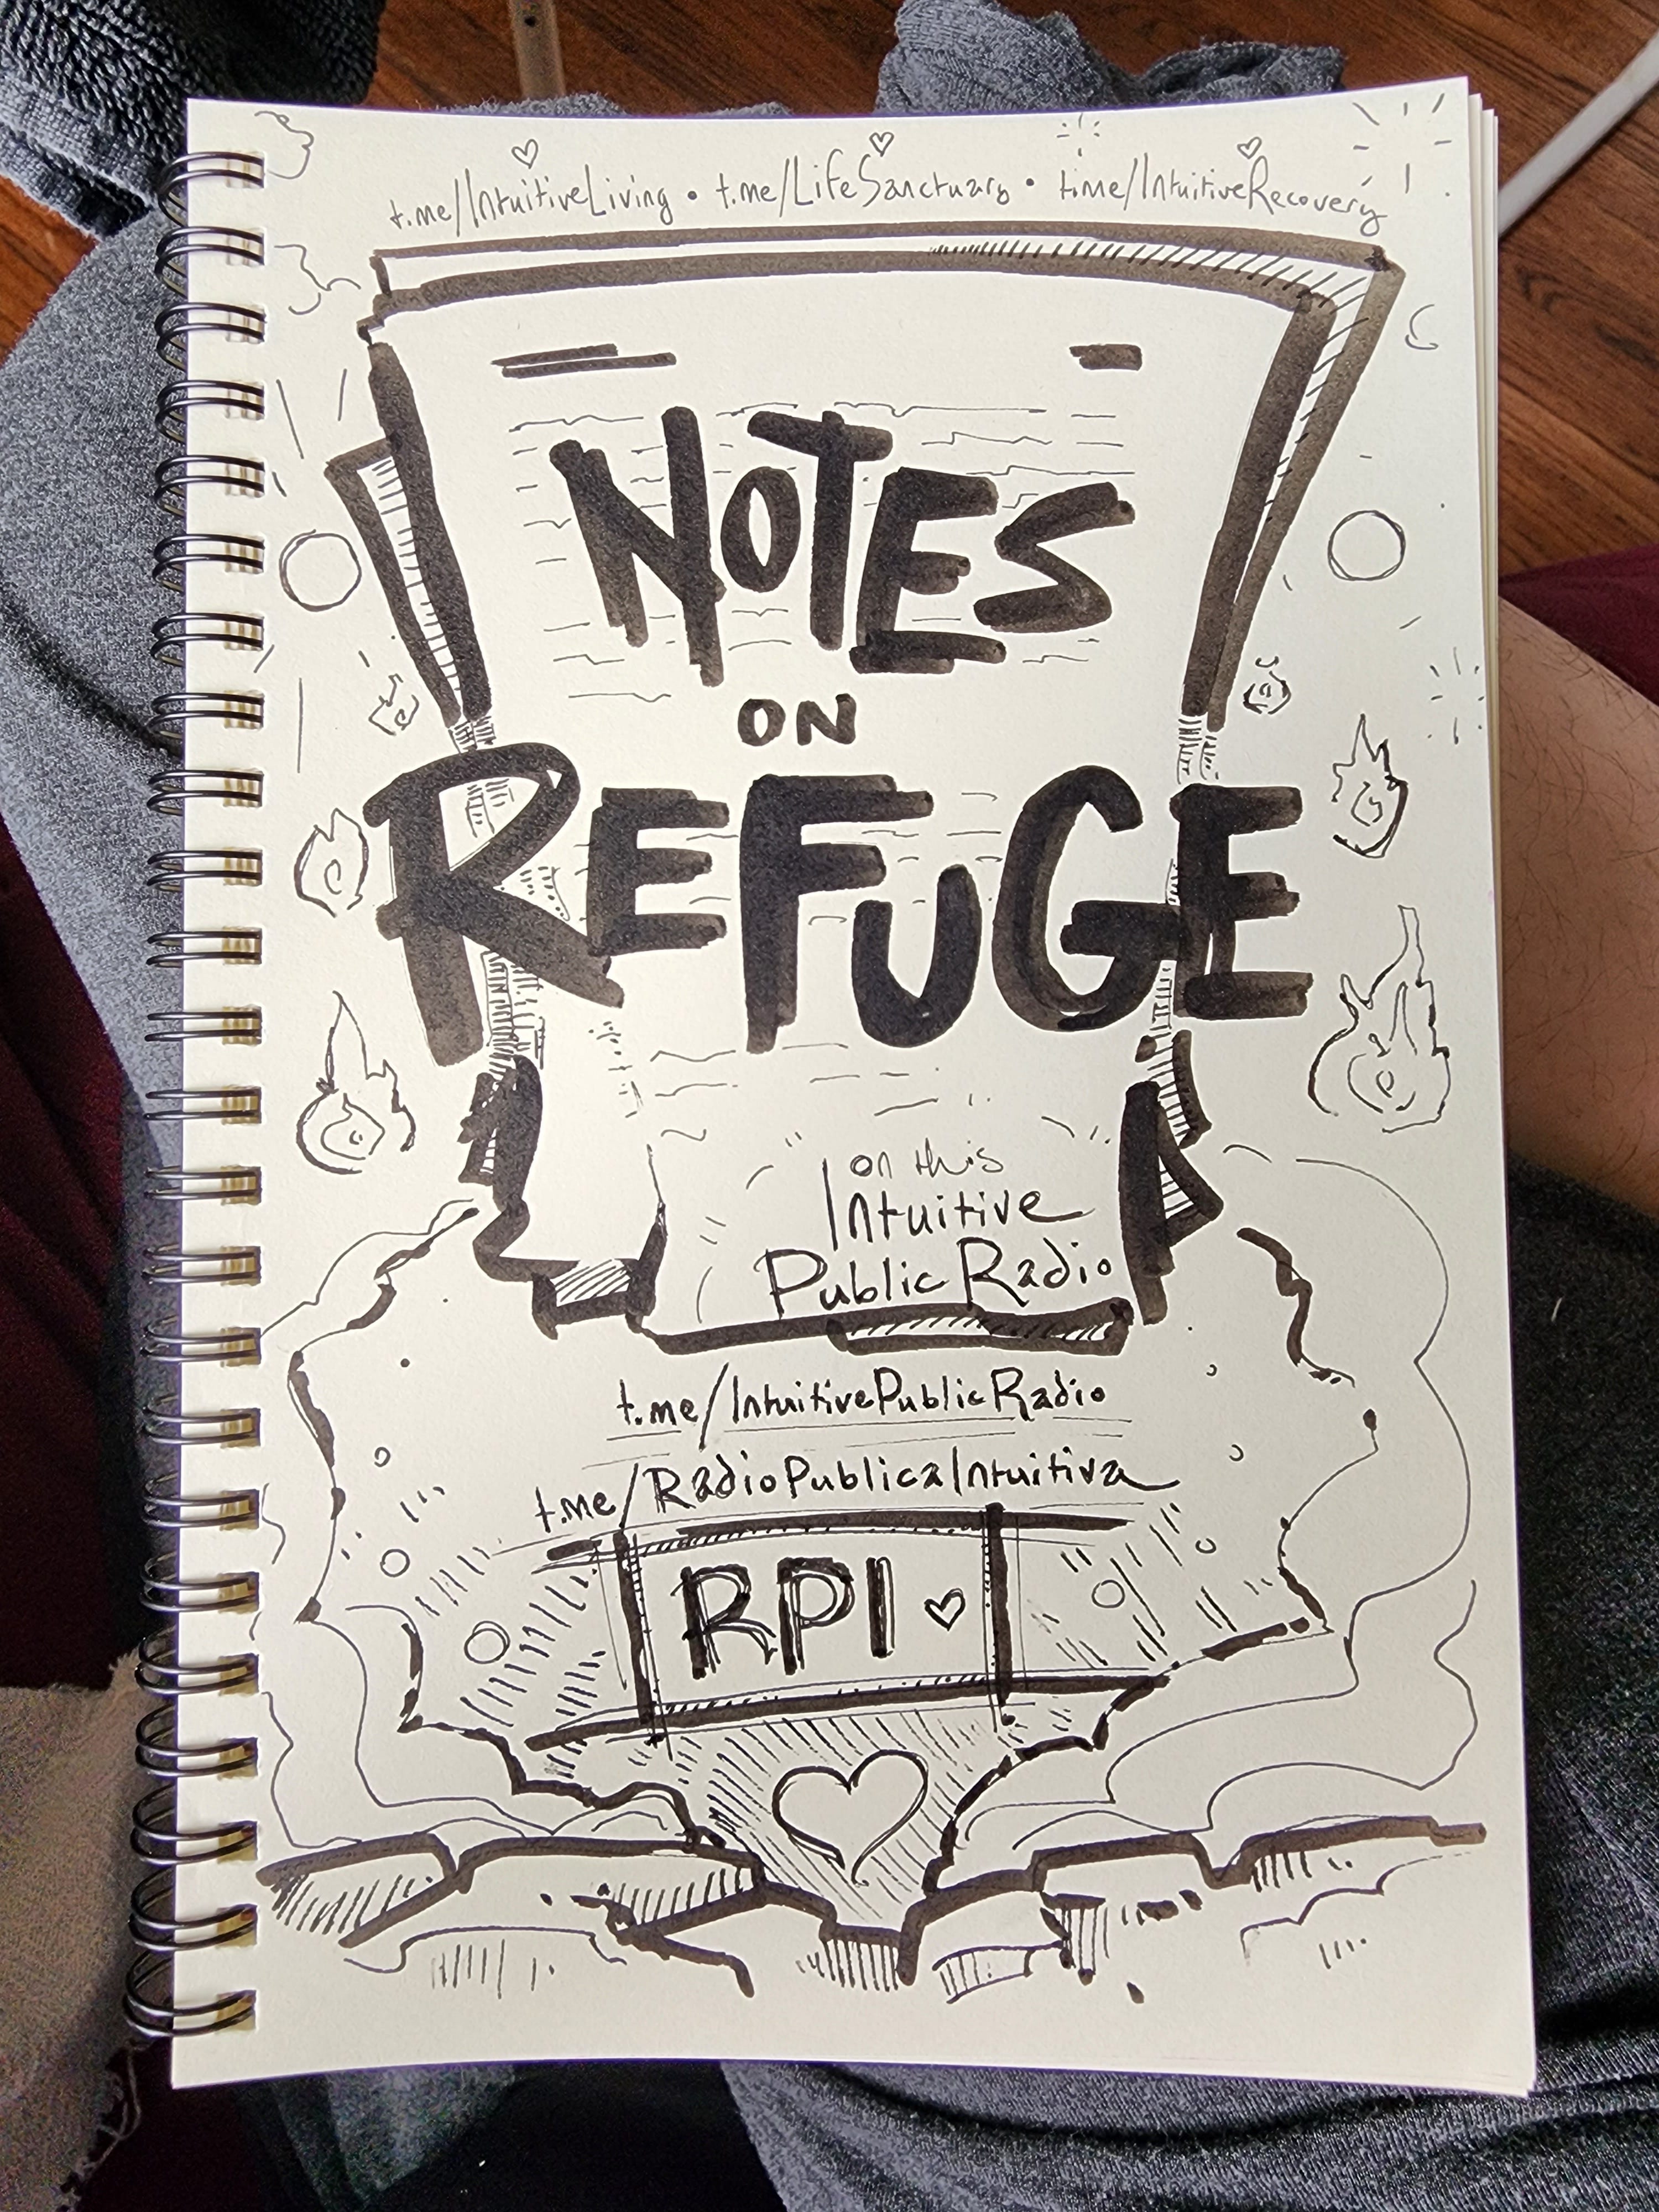 t.me/IntuitiveLiving • t.me/LifeSanctuary • t.me/IntuitiveRecovery
NOTES
ON
REFUGE
on this
Intuitive
Public Radio
t.me/IntuitivePublicRadio
t.me/RadioPublicaIntuitiva
RPI